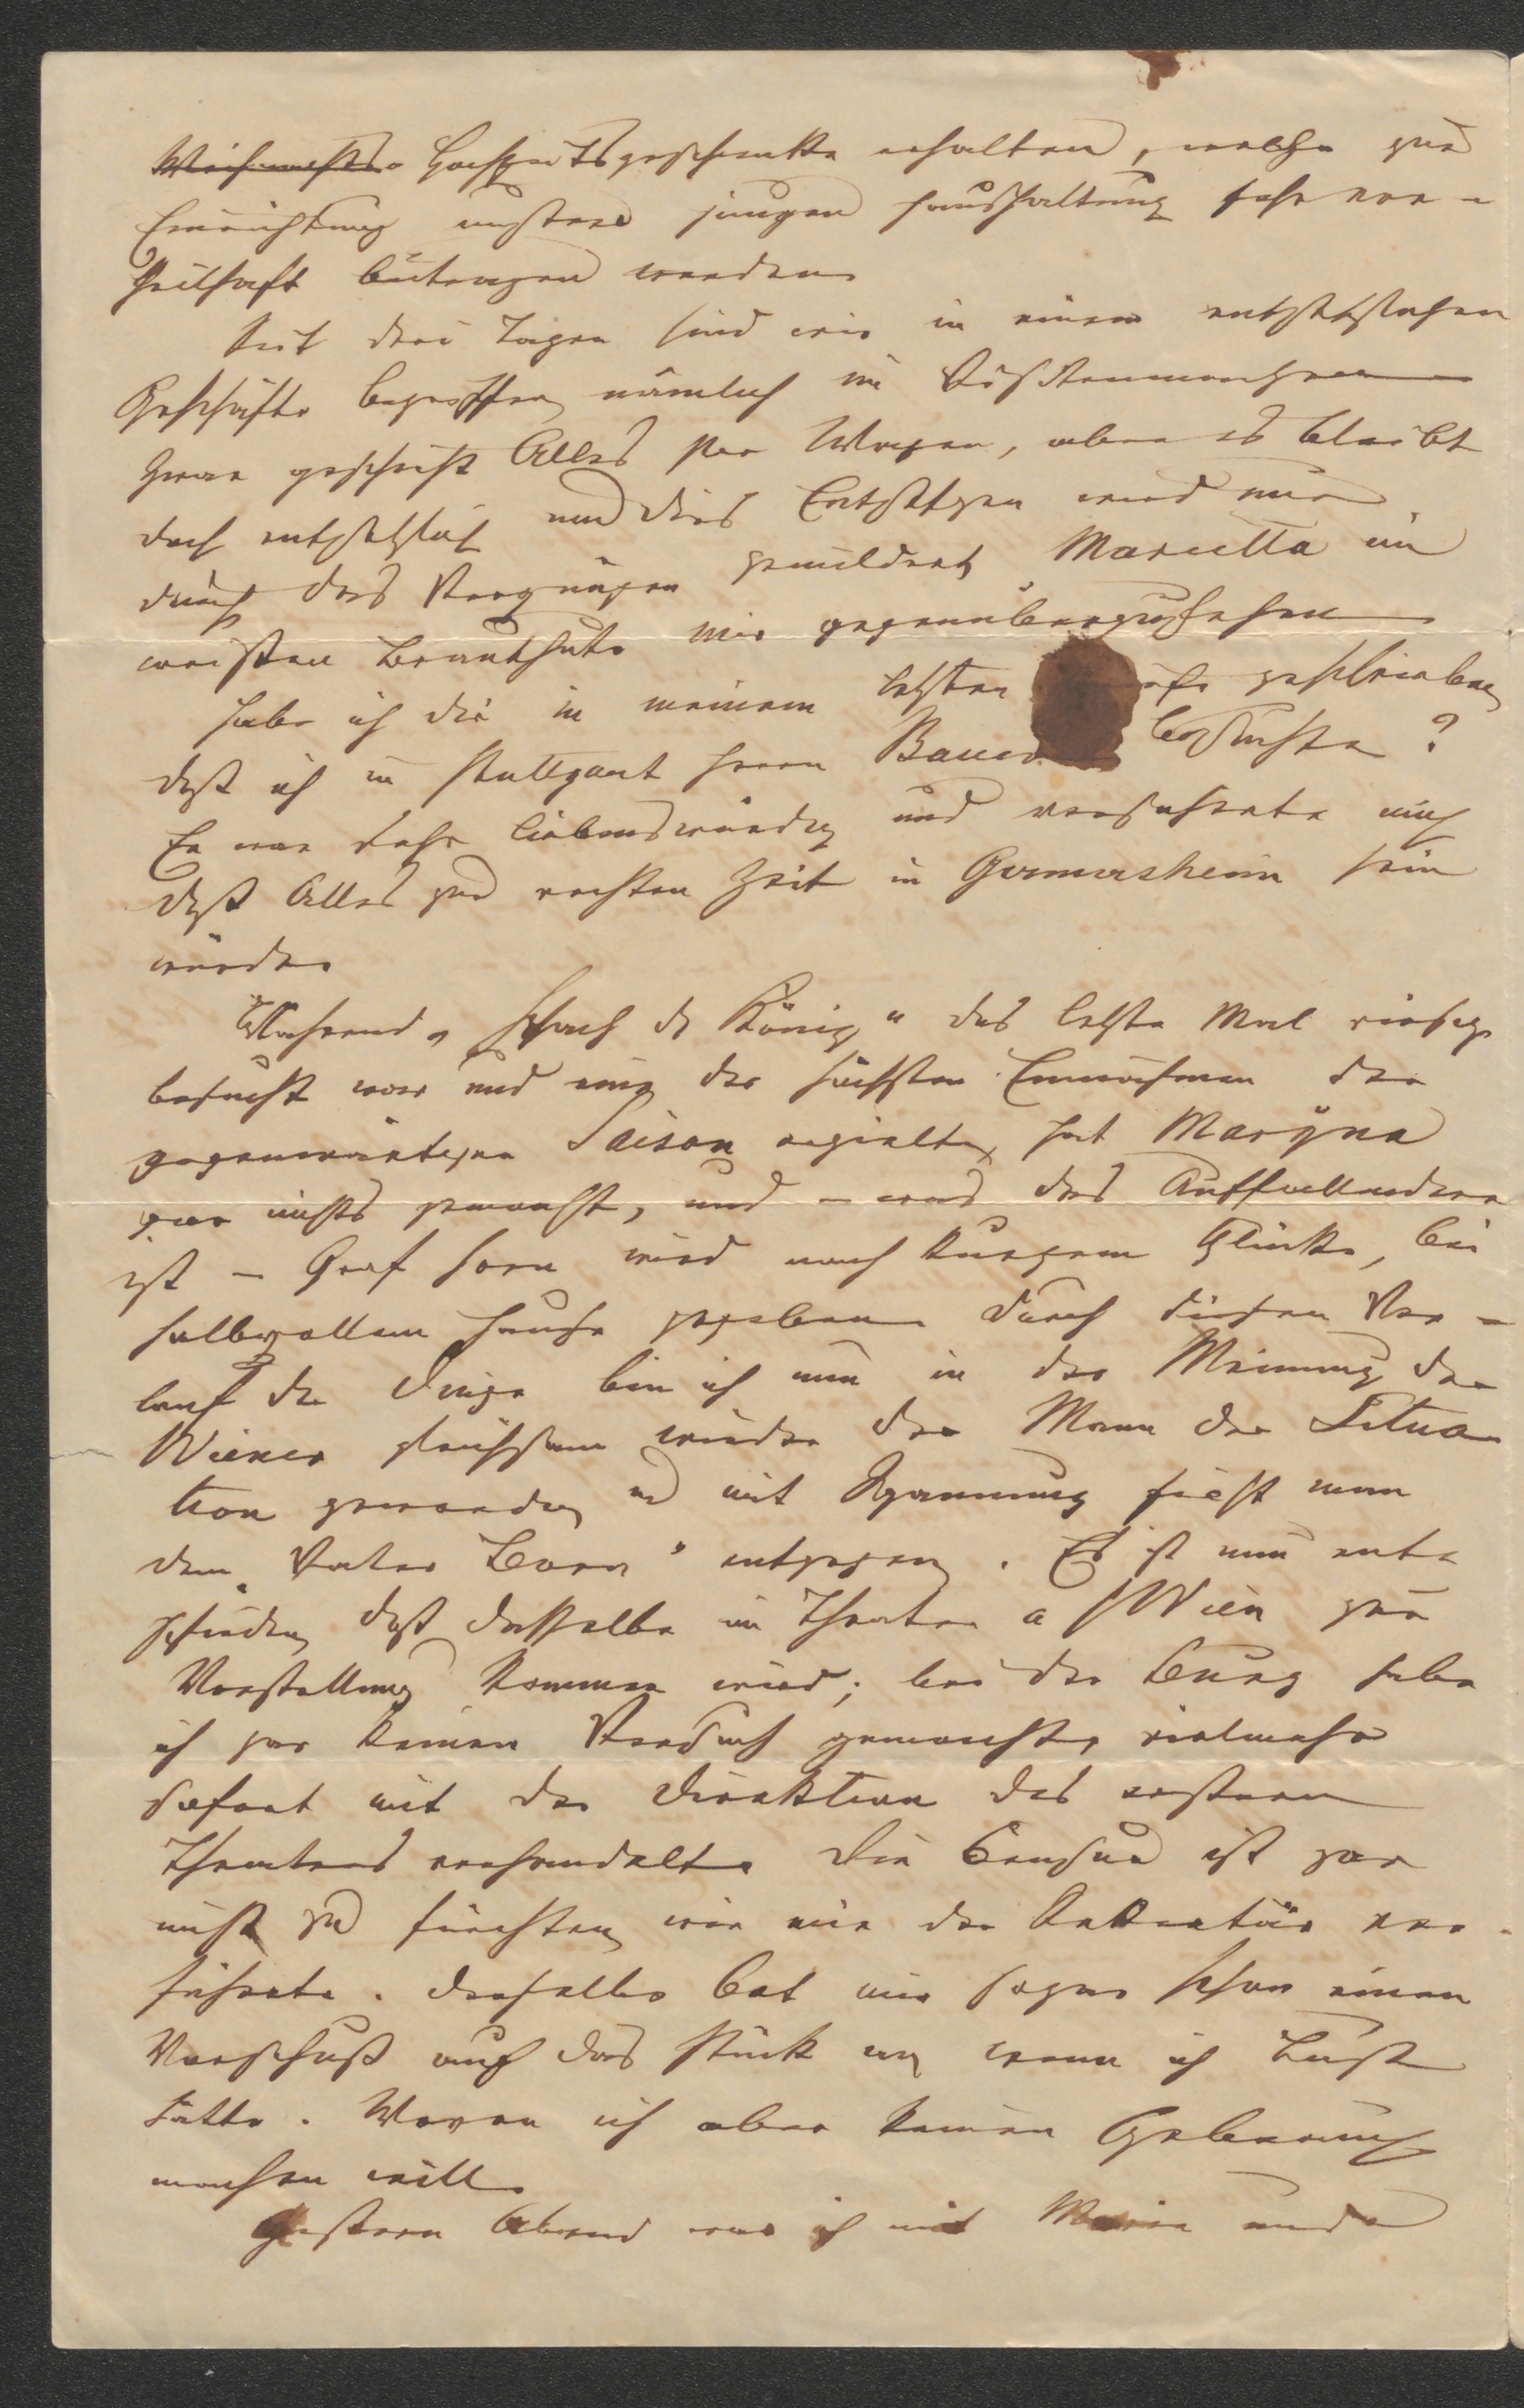 Weihnachts- Hochzeitsgeschenke erhalten, welche zur
Einrichtung unserer jungen Haushaltung sehr vor-
theilhaft beitragen werden.
Seit drei Tagen sind wir in einem entsetzlichen
Geschäfte begriffen, nämlich im Visitenmachen.
Zwar geschieht Alles per Wagen, aber es bleibt
doch entsetzlich und dies Entsetzen wird nur
durch das Vergnügen gemildert, Marietta im
weißen Brauthute mir gegenüberzusehen.
Habe ich dir in meinem letzten geschrieben,
daß ich in Stuttgart Herrn Bauer besuchte?
Er war sehr liebenswürdig und versicherte mich
daß Alles zur rechten Zeit in Germersheim sein
würde.
Während „Schach d. König" das letzte Mal riesig
besucht war und eine der höchsten Einnahmen der
gegenwärtigen Saison erzielte, hat Maryna
gar nichts gemacht, und – was das Auffallendere
ist – Graf Horn wird nach kurzem Glücke, bei
halbvollem Hause gegeben. Durch diesen Ver-
lauf der Dinge bin ich nun in der Meinung der
Wiener gleichsam wieder der Mann der Situa-
tion geworden und mit Spannung sieht man
dem „Vater Born" entgegen. Es ist nun ent-
schieden, daß dasselbe im Theater a/Wien zur
Vorstellung kommen wird; bei der Burg habe
ich gar keinen Versuch gemacht, vielmehr
sofort mit der Direktion des ersteren
Theaters verhandelt. Die Censur ist gar
nicht zu fürchten, wie mir der Sekretär ver-
sicherte. Derselbe bot mir sogar schon einen
Vorschuß auf das Stück an, wenn ich Lust
hätte. Wovon ich aber keinen Gebrauch
machen will.
Gestern Abend war ich mit Maria und